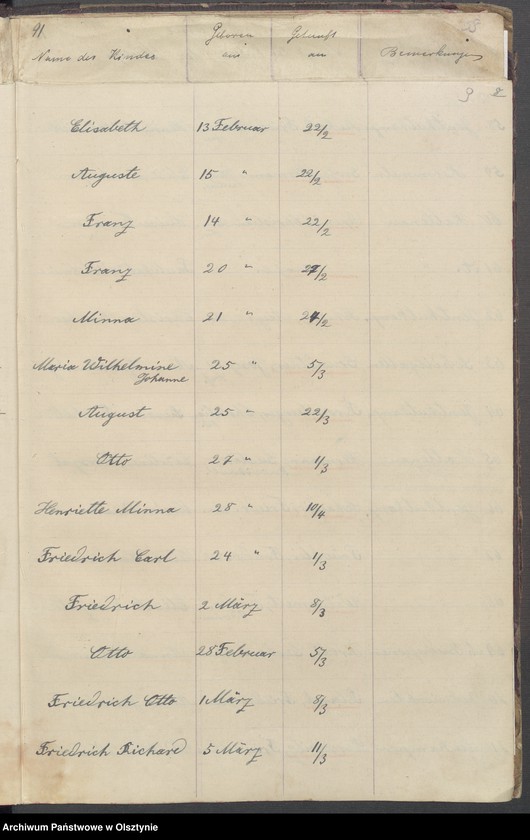 91.
Name des Kindes Geboren am Getauft am Bemerkungen
8
Elisabeth 13 Februar 22/2
Auguste 15 " 22/2
Franz 14 " 22/2
Franz 20 " /2
Minna 21 " 24/2
Maria Wilhelmine Johanne 25 " 5/3
August 25 " 22/3
Otto 27 " 1/3
Henriette Minna 28 " 10/4
Friedrich Carl 24 " 1/3
Friedrich 2 März 8/3
Otto 28 Februar 5/3
Friedrich Otto 1 März 8/3
Friedrich Richard 5 März 11/3
Archiwum Państwowe w Olsztynie